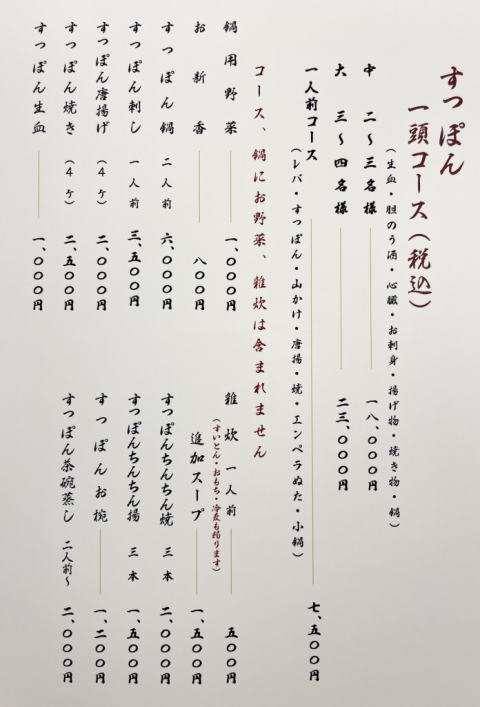 すっぽん
一頭コース（税込）
（生血・胆のう酒・心臓・お刺身・揚げ物・焼き物・鍋）
中 二～三名様 一八、〇〇〇円
大 三～四名様 二三、〇〇〇円
一人前コース 七、五〇〇円
（レバ・すっぽん・山かけ・唐揚・焼・エンペラぬた・小鍋）
コース、鍋にお野菜、雑炊は含まれません
鍋用野菜 一、〇〇〇円
お新香 八〇〇円
すっぽん鍋 二人前 六、〇〇〇円
すっぽん刺し 一人前 三、五〇〇円
すっぽん唐揚げ（4ヶ） 二、〇〇〇円
すっぽん焼き（4ヶ） 二、五〇〇円
すっぽん生血 一、〇〇〇円
雑炊 一人前 五〇〇円
（すいとん・おもち・冷麦も賜ります）
追加スープ 一、五〇〇円
すっぽんちんちん焼 三本 二、〇〇〇円
すっぽんちんちん揚 三本 一、五〇〇円
すっぽんお椀 一、二〇〇円
すっぽん茶碗蒸し 二人前～ 二、〇〇〇円